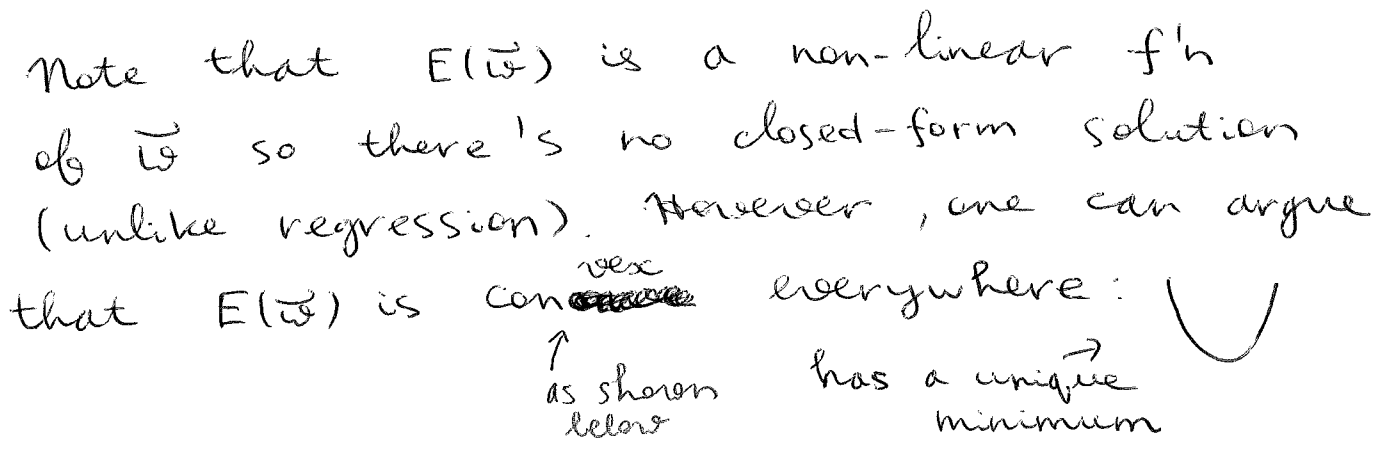 Note that E(w⃗) is a non-linear f'n
of w⃗ so there's no closed-form solution
(unlike regression). However, one can argue
that E(w⃗) is convex everywhere:
↑ as shown has a unique →
below minimum